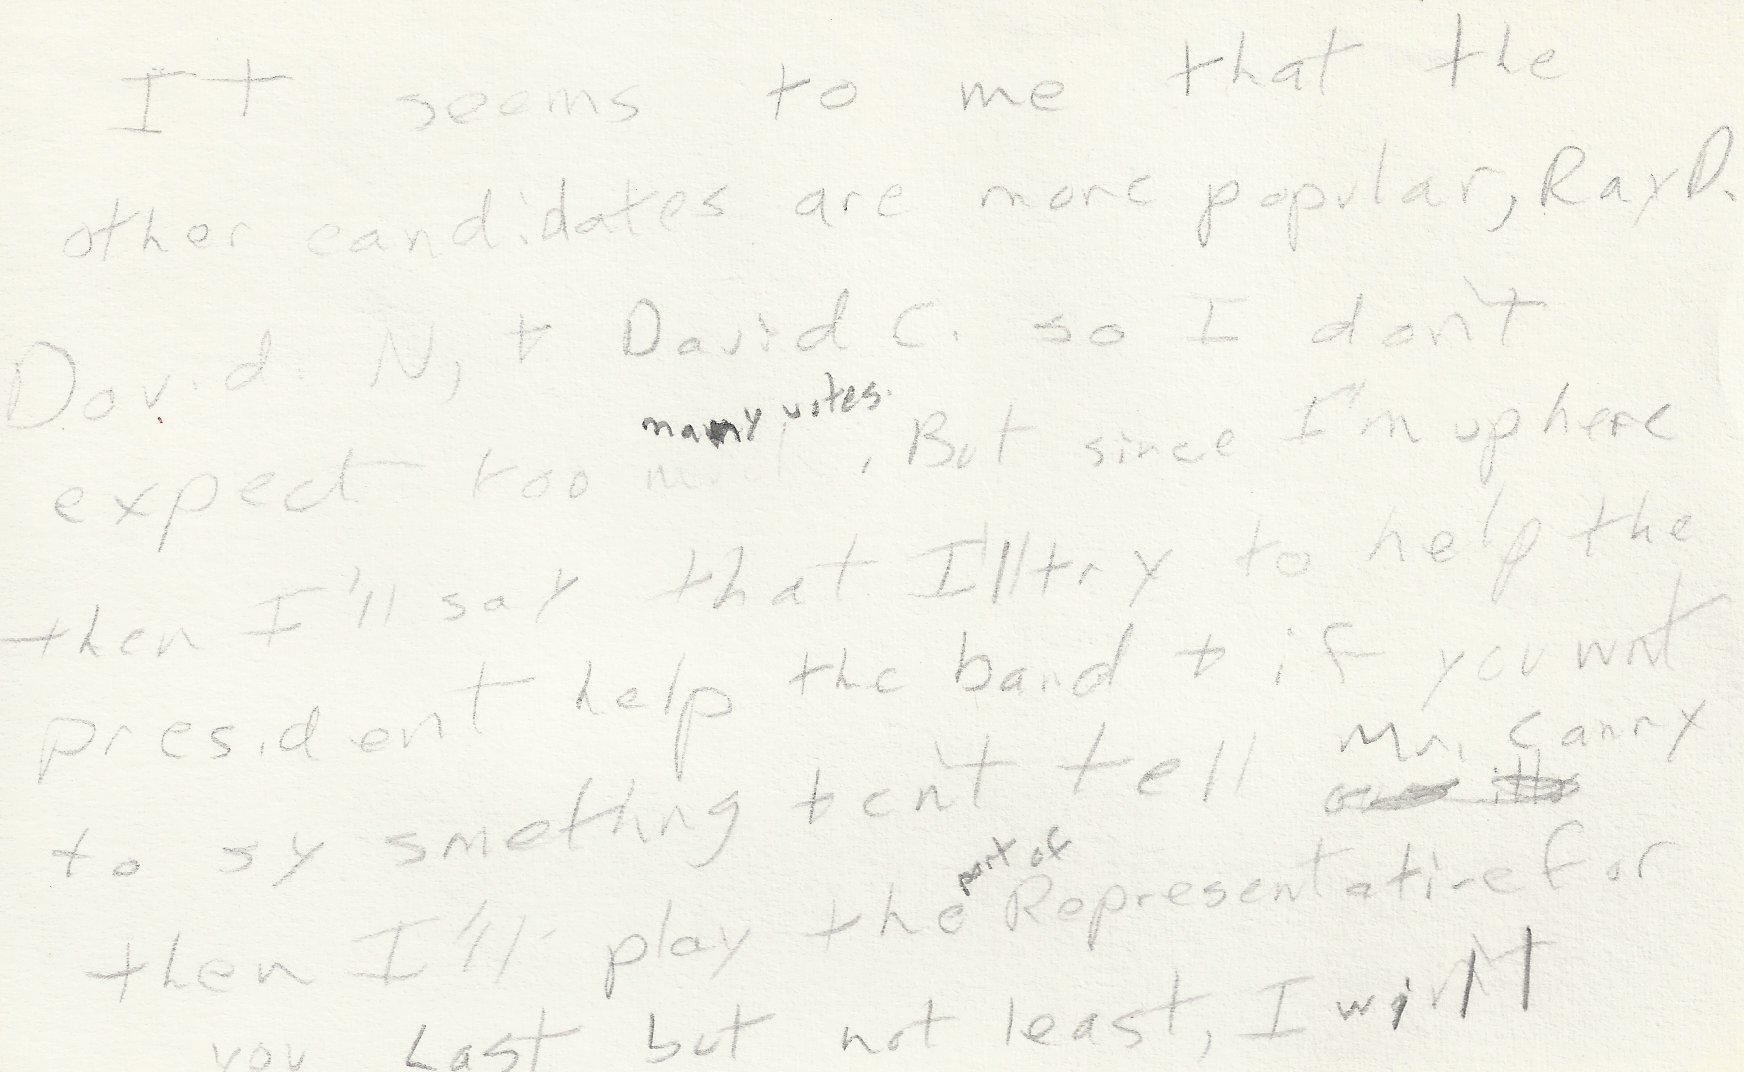 It seems to me that the
other candidates are more popular, Ray D.
David N, + David C. so I don't
many votes.
expect too , But since I'm up here
then I'll say that I'll try to help the
president help the band + if you wnt
Mr. Canny
to sy smethng + cn't tell
part of
then I'll play the Representative for
you Last but not least, I will